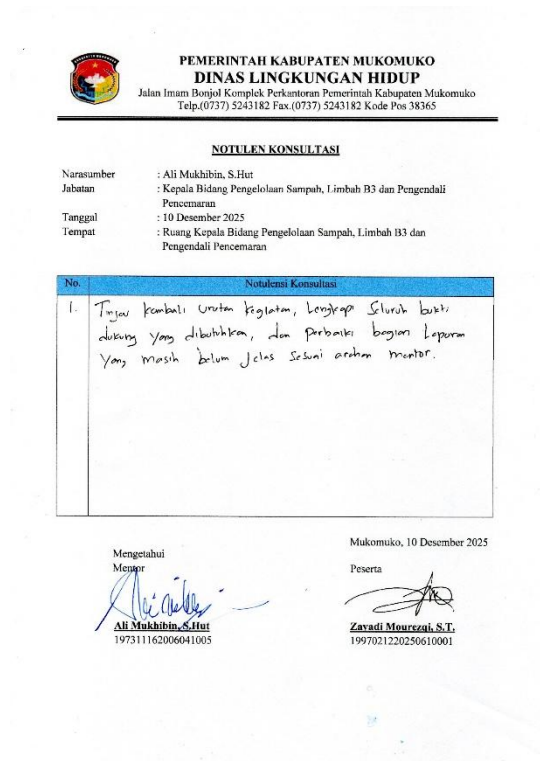 PEMERINTAH KABUPATEN MUKOMUKO
DINAS LINGKUNGAN HIDUP
Jalan Imam Bonjol Komplek Perkantoran Pemerintah Kabupaten Mukomuko
Telp.(0737) 5243182 Fax.(0737) 5243182 Kode Pos 38365
NOTULEN KONSULTASI
Narasumber : Ali Mukhibin, S.Hut
Jabatan : Kepala Bidang Pengelolaan Sampah, Limbah B3 dan Pengendali
Pencemaran
Tanggal : 10 Desember 2025
Tempat : Ruang Kepala Bidang Pengelolaan Sampah, Limbah B3 dan
Pengendali Pencemaran
No. Notulensi Konsultasi
1. Tinjau kembali urutan kegiatan, Lengkapi Seluruh bukti
dukung yang dibutuhkan, dan Perbaiki bagian Laporan
yang masih belum Jelas Sesuai arahan mentor.
Mukomuko, 10 Desember 2025
Mengetahui
Mentor
Peserta
Ali Mukhibin, S.Hut
197311162006041005
Zayadi Mourezqi, S.T.
199702122025061001